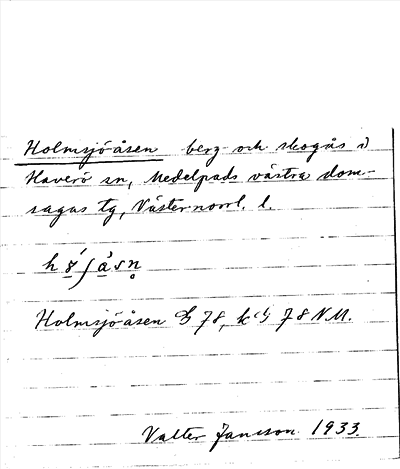 Holmsjöåsen berg- och skogås i
Haverö sn, Medelpads västra dom-
sagas tg, Västernorrl. l.
Holmsjöåsen 78, 78 N.M.
Valter Jansson 1933.